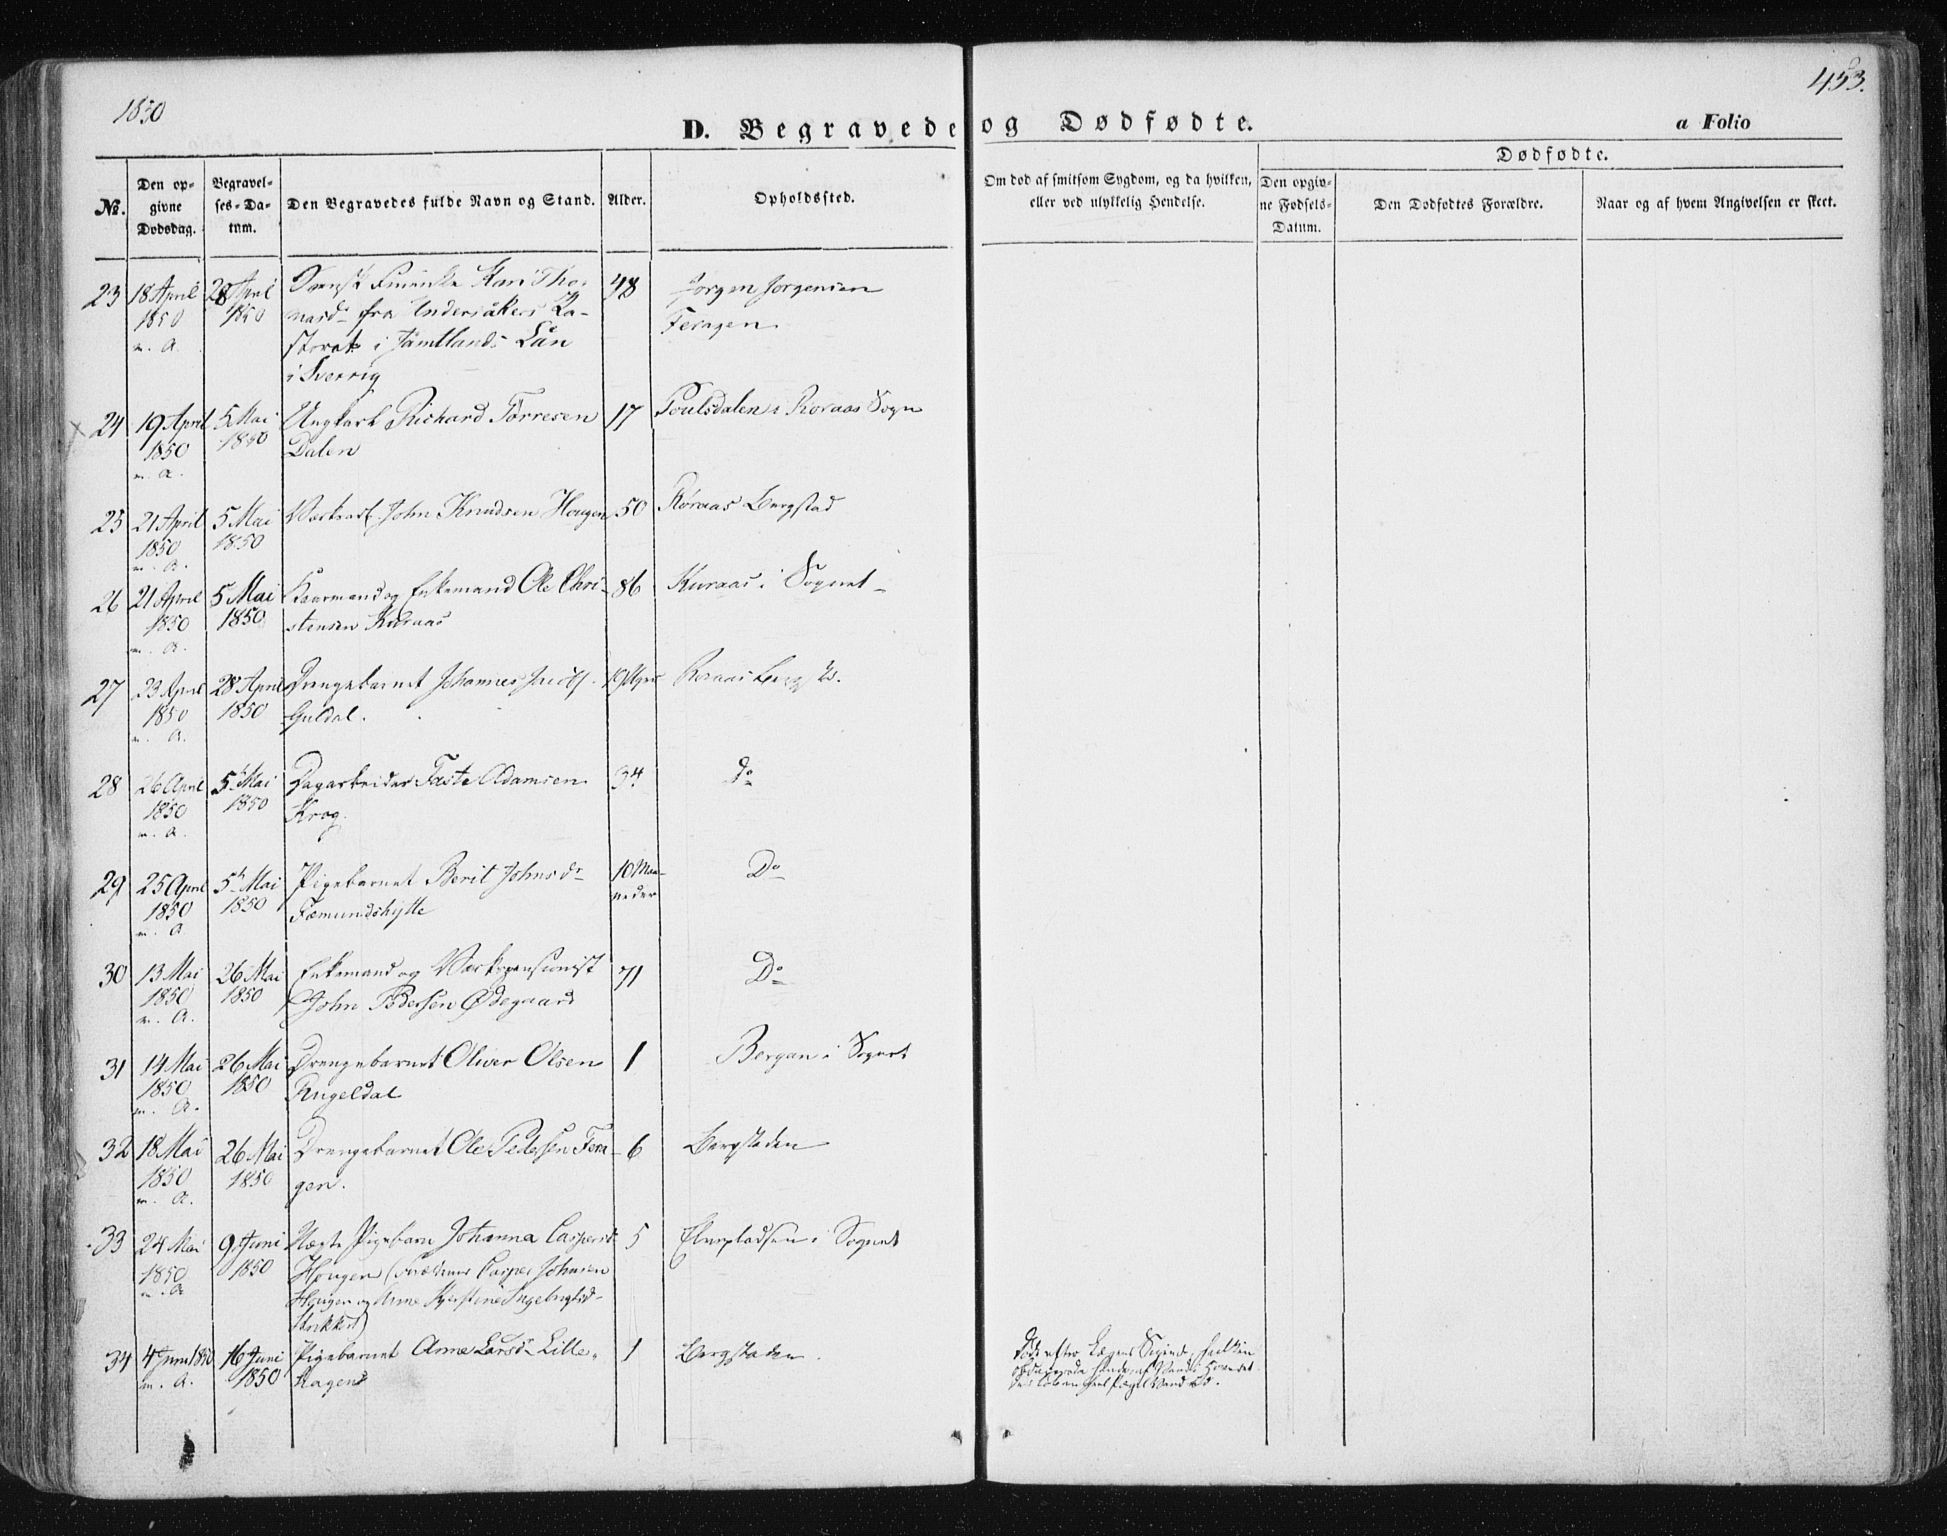 1850
453.
D. Begravede og Dødfødte.
a Folio
No.
Den op-
givne
Dødsdag.
Begravel-
ses-Da-
tum.
Den Begravedes fulde Navn og Stand.
Alder.
Opholdssted.
Om død af smitsom Sygdom, og da hvilken,
eller ved ulykkelig Hendelse.
Dødfødte.
Den opgiv-
ne Fødsels-
Datum.
Den Dødfødtes Forældre.
Naar og af hvem Angivelsen er skeet.
23 18 April 28 April Svensk Kari Tho- 48 Jørgen Jørgensen
1850 1850 masd. fra Undersåkers Pa- Feragen
m. A. storat i Jämtlands Län
i Sverrig
24 19 April 5 Mai Ungkarl Richard Tørresen 17 Poulsdalen i Roraas Sogn
1850 1850 Dalen
m. A.
25 21 April 5 Mai John Knudsen Hougen 50 Røraas Bergstad
1850 1850
m. A.
26 21 April 5 Mai Enkemand Ole Chri- 86 Kuraas i Sognet
1850 1850 stensen Kuraas
m. A.
27 23 April 28 April Drengebarnet Johannes Roraas
1850 1850 Guldal.
m. A.
28 26 April 5 Mai Dagarbeider Tøste Adamsen 34 Do
1850 1850 Krog.
m. A.
29 25 April 5 Mai Pigebarnet Berit Johnsdr 10 Maa- Do
1850 1850 Fæmundshytte neder
m. A.
30 13 Mai 26 Mai Enkemand og Værkspensionist 71 Do
1850 1850 John Pedersen Ødegaard
m. A.
31 14 Mai 26 Mai Drengebarnet Oliver Olsen 1 Bergan i Sognet
1850 1850 Rugeldal
m. A.
32 18 Mai 26 Mai Drengebarnet Ole Pedersen Fera- 6 Bergstaden
1850 1850 gen.
m. A.
33 24 Mai 9 Juni Pigebarn Johanna Caspersd 5 i Sognet
1850 1850 Hougen (Casper Johnsen
m. A. Hougen og Anne Kjerstine Ingebrigtsd.
34 4 Juni 1850 16 Juni Pigebarnet Anne Larsdr Lille- 1 Bergstaden
m. A. 1850 hagen
Død efter Lægens